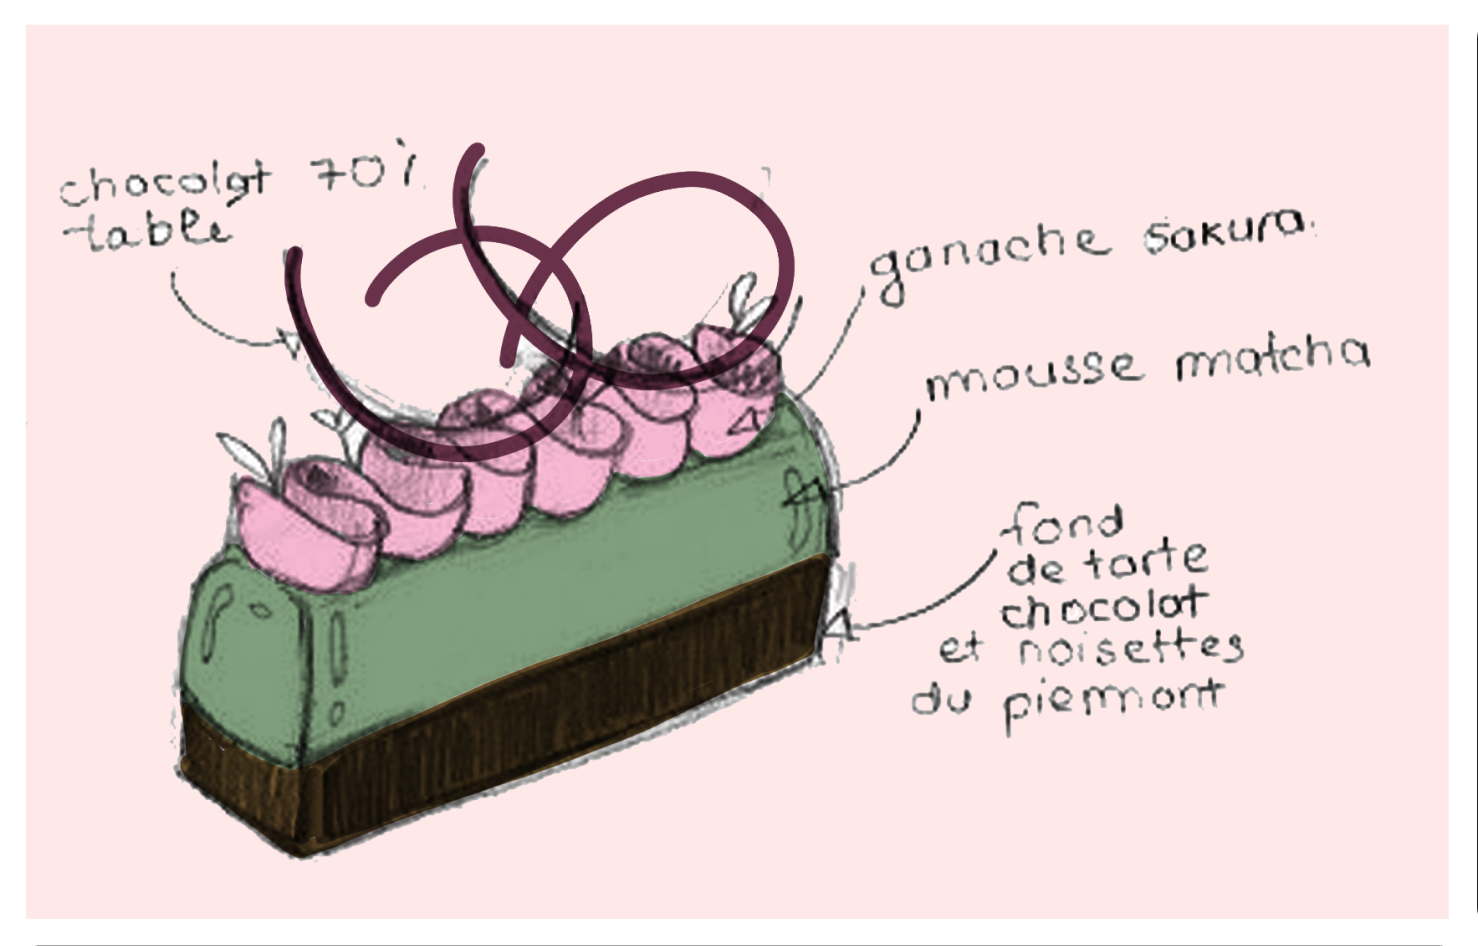 chocolat 70%
table
ganache sakura.
mousse matcha
fond
de tarte
chocolat
et noisettes
du piemont